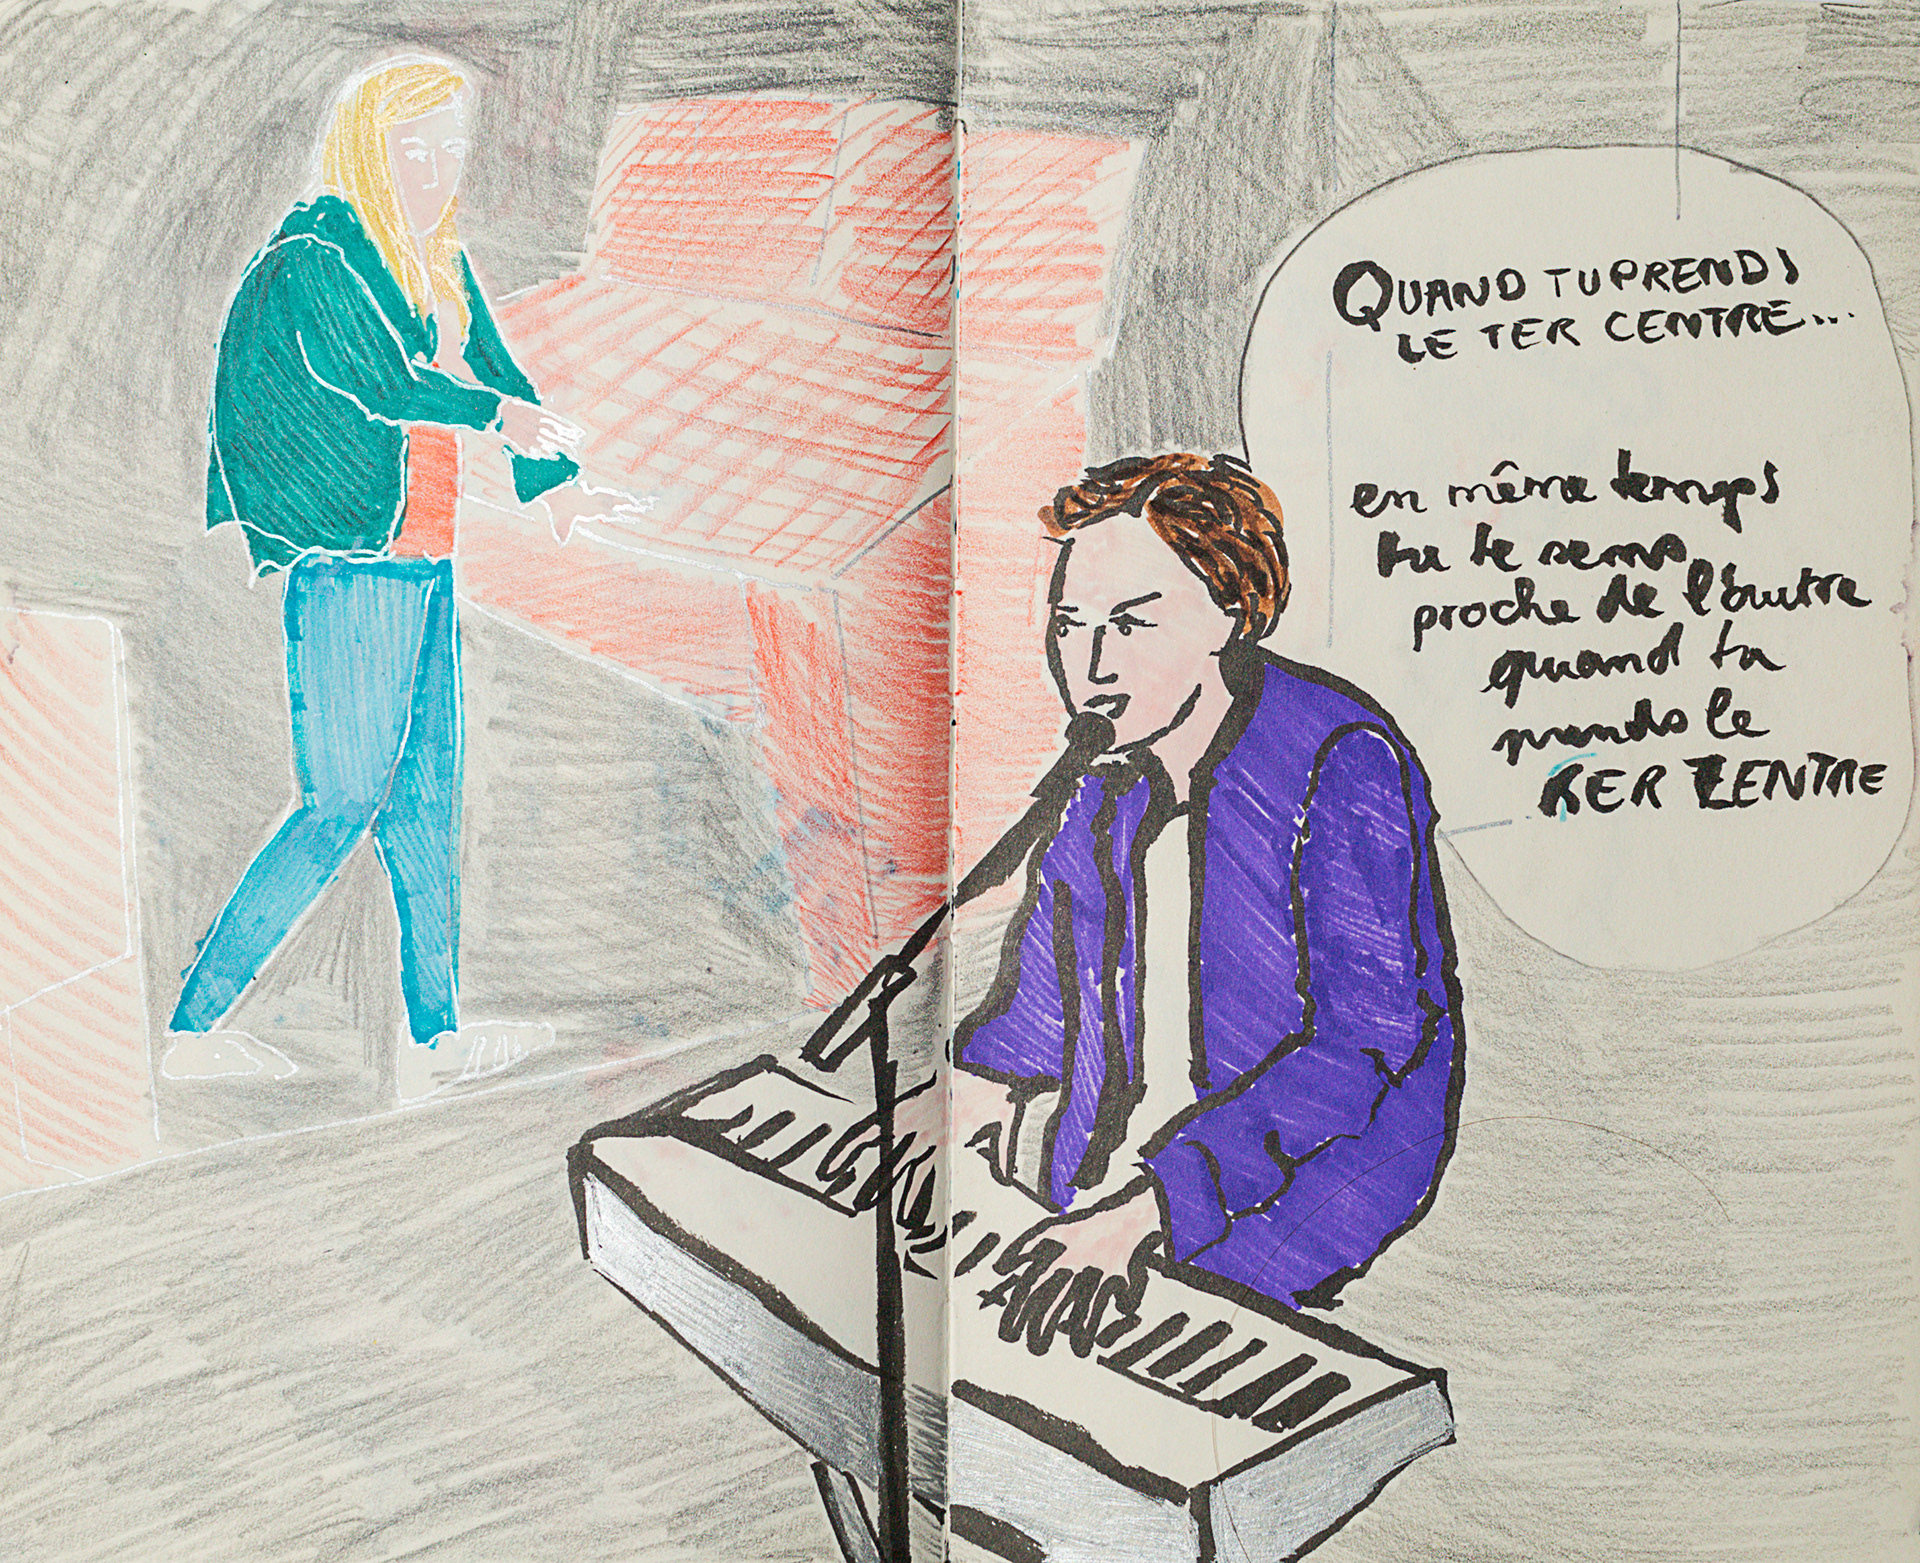 QUAND TU PRENDS
LE TER CENTRE...
en même temps
tu te sens
proche de l'autre
quand tu
prends le
RER CENTRE